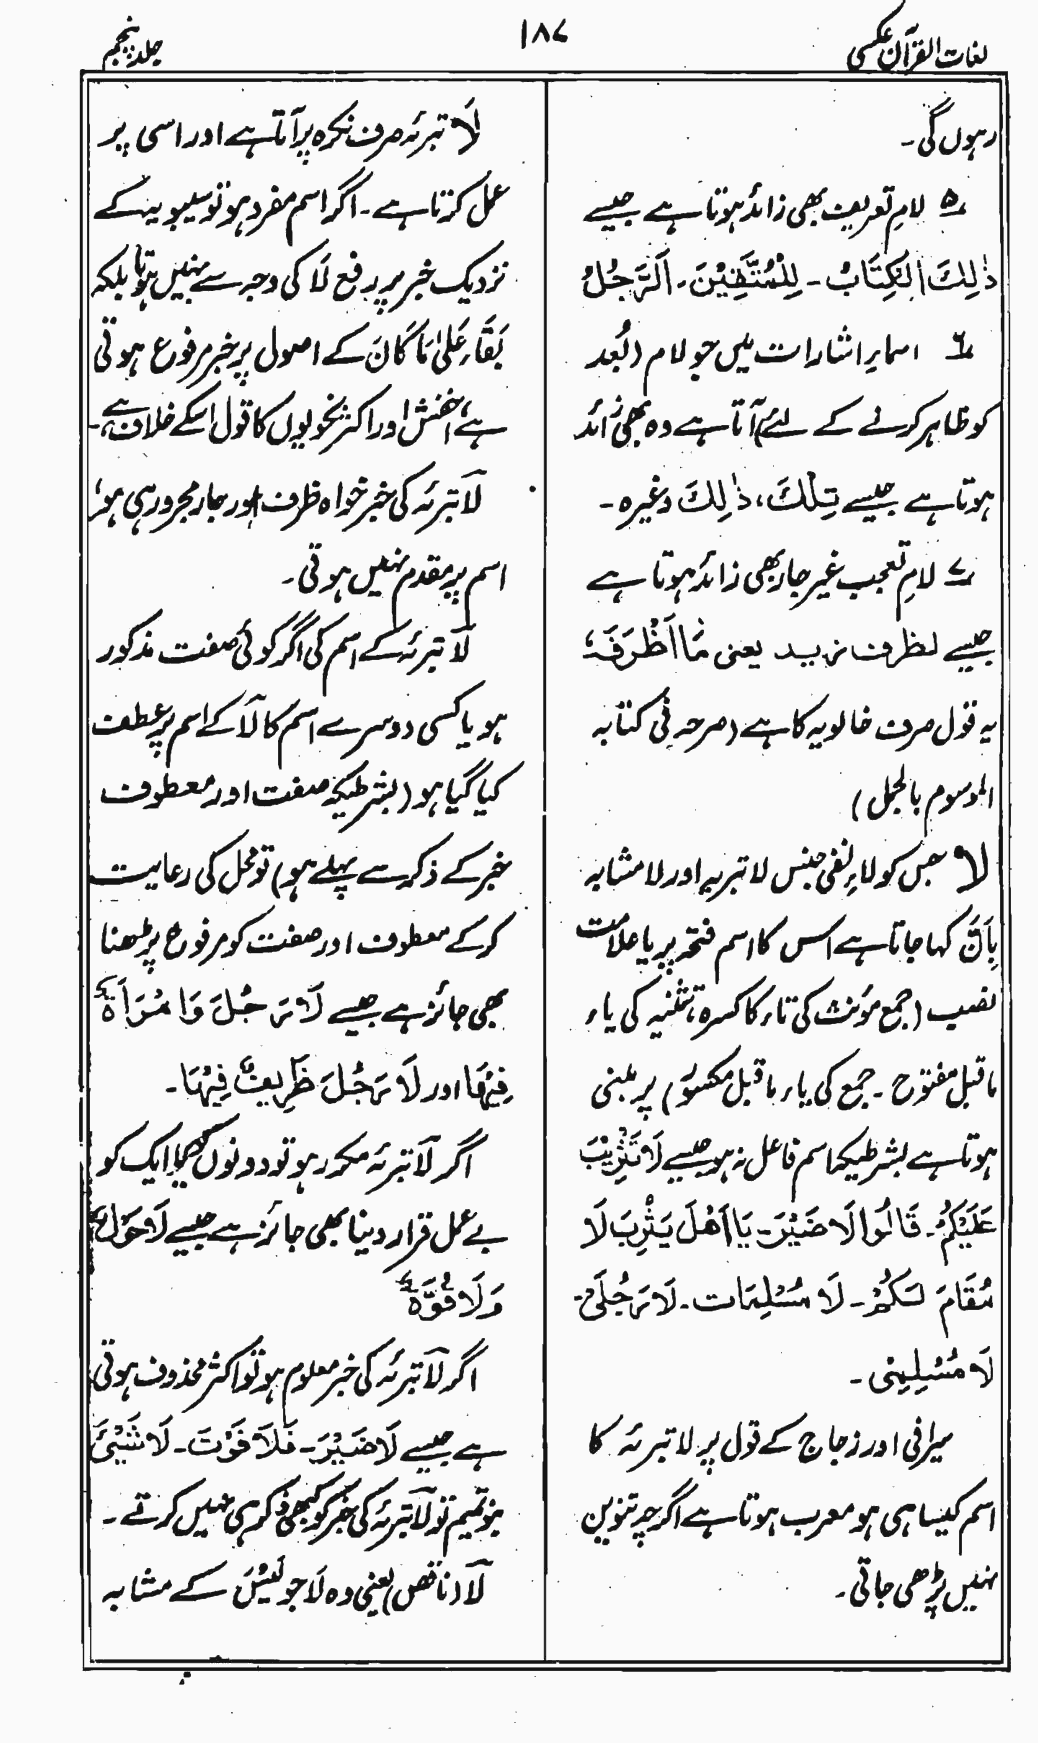 لغات القرآن عکسی
۱۸۷
جلد پنجم
رہوں گی۔
۵ لامِ تعریف بھی زائد ہوتا ہے جیسے
ذٰلِكَ الْكِتَابُ۔ لِلْمُتَّقِيْنَ۔ اَلرَّجُلُ
۶ اسماءِ اشارات میں جو لام (بُعد
کو ظاہر کرنے کے لئے) آتا ہے وہ بھی زائد
ہوتا ہے جیسے تِلْكَ، ذٰلِكَ وغیرہ۔
۷ لامِ تعجب غیر جار بھی زائد ہوتا ہے
جیسے لظرف زید یعنی مَا اَظْرَفَہٗ
یہ قول صرف خالویہ کا ہے (صرحہ فی کتابہ
الموسوم بالجمل)
لا جس کو لاءِ نفی جنس لا تبریہ اور لا مشابہ
بِاَنَّ کہا جاتا ہے اس کا اسم فتحہ پر یا علامت
نصب (جمع مؤنث کی تاء کا کسرہ، تثنیہ کی یاء
ماقبل مفتوح۔ جمع کی یاء ماقبل مکسور) پر مبنی
ہوتا ہے بشرطیکہ اسم فاعل نہ ہو جیسے لَا تَثْرِيْبَ
عَلَيْكُمْ۔ قَالُوا لَا ضَيْرَ۔ يَا اَهْلَ يَثْرِبَ لَا
مُقَامَ لَكُمْ۔ لَا مُسْلِمَات۔ لَا رَجُلَيْ۔
لَا مُسْلِمِیْ۔
سیرافی اور زجاج کے قول پر لا تبرئہ کا
اسم کیسا ہی ہو معرب ہوتا ہے اگرچہ تنوین
نہیں پڑھی جاتی۔
لَا تبرئہ صرف نکرہ پر آتا ہے اور اسی پر
عمل کرتا ہے۔ اگر اسم مفرد ہو تو سیبویہ کے
نزدیک خبر پر رفع لَا کی وجہ سے نہیں ہوتا بلکہ
بَقَاء عَلیٰ مَا کَانَ کے اصول پر خبر مرفوع ہوتی
ہے، اخفش اور اکثر نحویوں کا قول اسکے خلاف ہے۔
لَا تبرئہ کی خبر خواہ ظرف اور جار مجرور ہی ہو
اسم پر مقدم نہیں ہوتی۔
لَا تبرئہ کے اسم کی اگر کوئی صفت مذکور
ہو یا کسی دوسرے اسم کا لَا کے اسم پر عطف
کیا گیا ہو (بشرطیکہ صفت اور معطوف
خبر کے ذکر سے پہلے ہو) تو محل کی رعایت
کرکے معطوف اور صفت کو مرفوع پڑھنا
بھی جائز ہے جیسے لَا رَجُلَ وَامْرَأَةٌ
فِيْهَا اور لَا رَجُلَ ظَرِيفٌ فِيْهَا۔
اگر لَا تبرئہ مکرر ہو تو دونوں کو یا ایک کو
بے عمل قرار دینا بھی جائز ہے جیسے لَا حَوْلٌ
وَلَا قُوَّةٌ
اگر لَا تبرئہ کی خبر معلوم ہو تو اکثر محذوف ہوتی
ہے جیسے لَا ضَيْرَ۔ فَلَا فَوْتَ۔ لَا شَيْئَ
بنو تمیم تو لَا تبرئہ کی خبر کو کبھی ذکر ہی نہیں کرتے۔
لَا (ناقص) یعنی وہ لَا جو لَيْسَ کے مشابہ